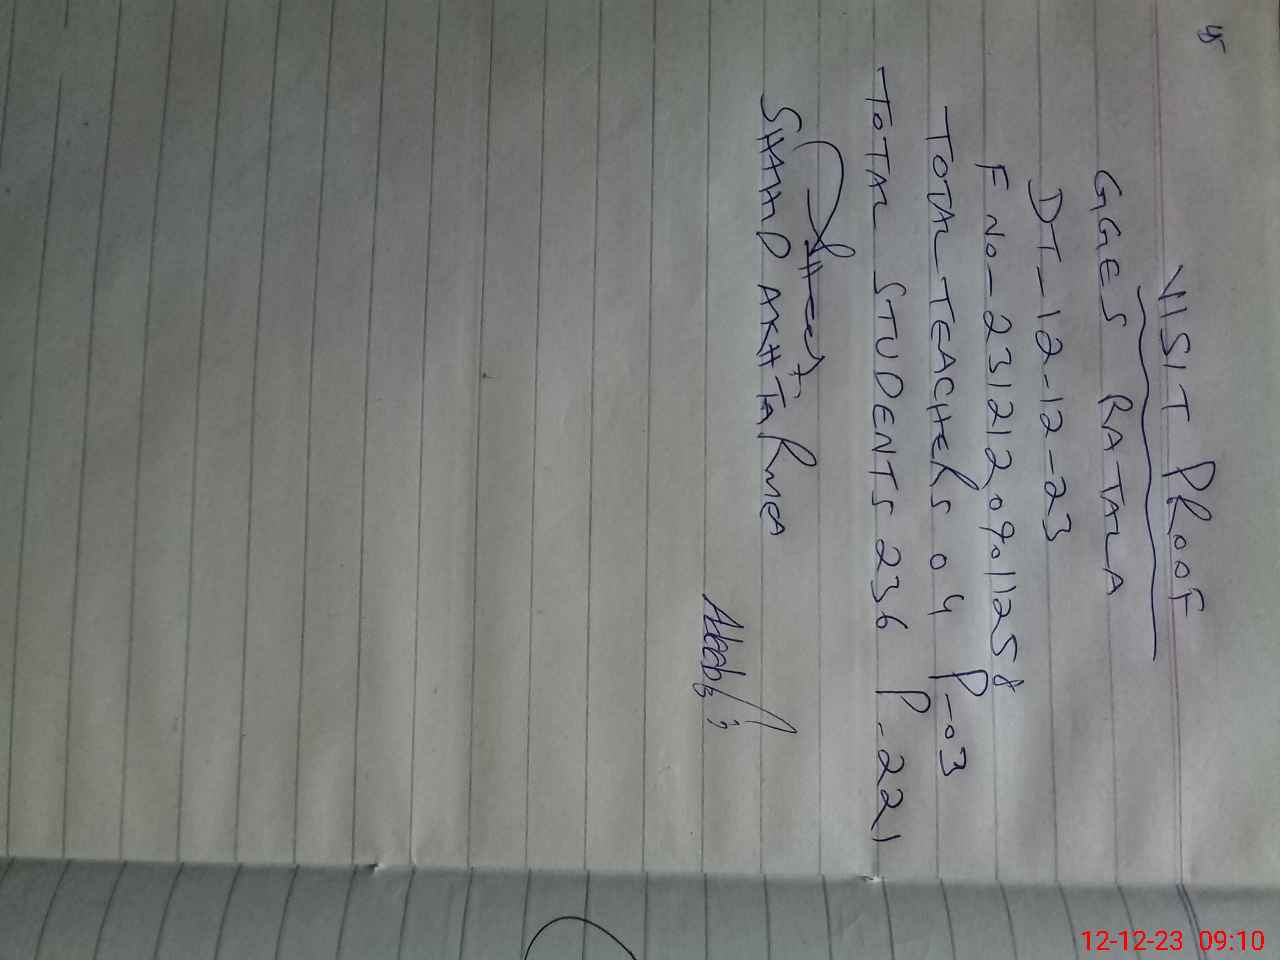 45
VISIT PROOF
GGES RATALA
DT-12-12-23
F No-23121209011258
TOTAL TEACHERS 04 P-03
TOTAL STUDENTS 236 P-221
AKHTAR
12-12-23 09:10